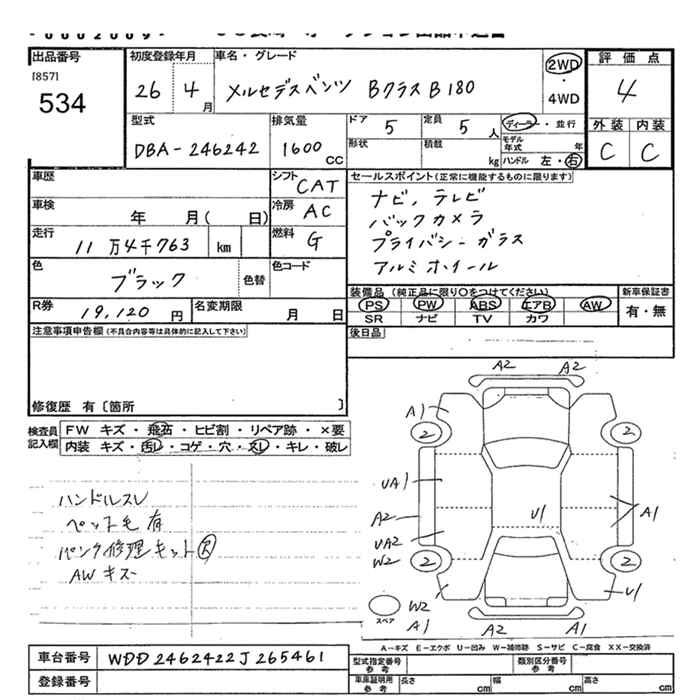 出品番号
[857]
534
初度登録年月
26 4月
車名・グレード
メルセデスベンツ Bクラス B180
2WD
・
4WD
評価点
4
外装 内装
C C
型式
DBA-246242
排気量
1600 CC
ドア 5
定員 5 人
形状
積載 kg
ディーラー・並行
モデル年式 年
ハンドル 左・右
車歴
シフト CAT
車検 年 月( 日)
冷房 AC
走行 11万4千763 km
燃料 G
色 ブラック 色替
色コード
R券 19,120 円
名変期限 月 日
セールスポイント(正常に機能するものに限ります)
ナビ、テレビ
バックカメラ
プライバシーガラス
アルミホイール
装備品(純正品に限り○をつけてください)
PS PW ABS エアB AW
SR ナビ TV カワ
新車保証書
有・無
後日品
注意事項申告欄(不具合内容等は具体的に記入して下さい)
修復歴 有〔箇所 〕
検査員記入欄
FW キズ・飛石・ヒビ割・リペア跡・×要
内装 キズ・汚レ・コゲ・穴・スレ・キレ・破レ
ハンドルスレ
ペット毛有
パンク修理キット欠
AWキズ
A2 A2
A1
2 2
UA1
A2
U1
A1
UA2
W2
2 2
U1
スペア
W2
A1
A2 A1
A-キズ E-エクボ U-凹み W-補修跡 S-サビ C-腐食 XX-交換済
車台番号 WDD2462422J265461
登録番号
型式指定番号 参考
類別区分番号 参考
車庫証明用 参考
長さ cm
幅 cm
高さ cm